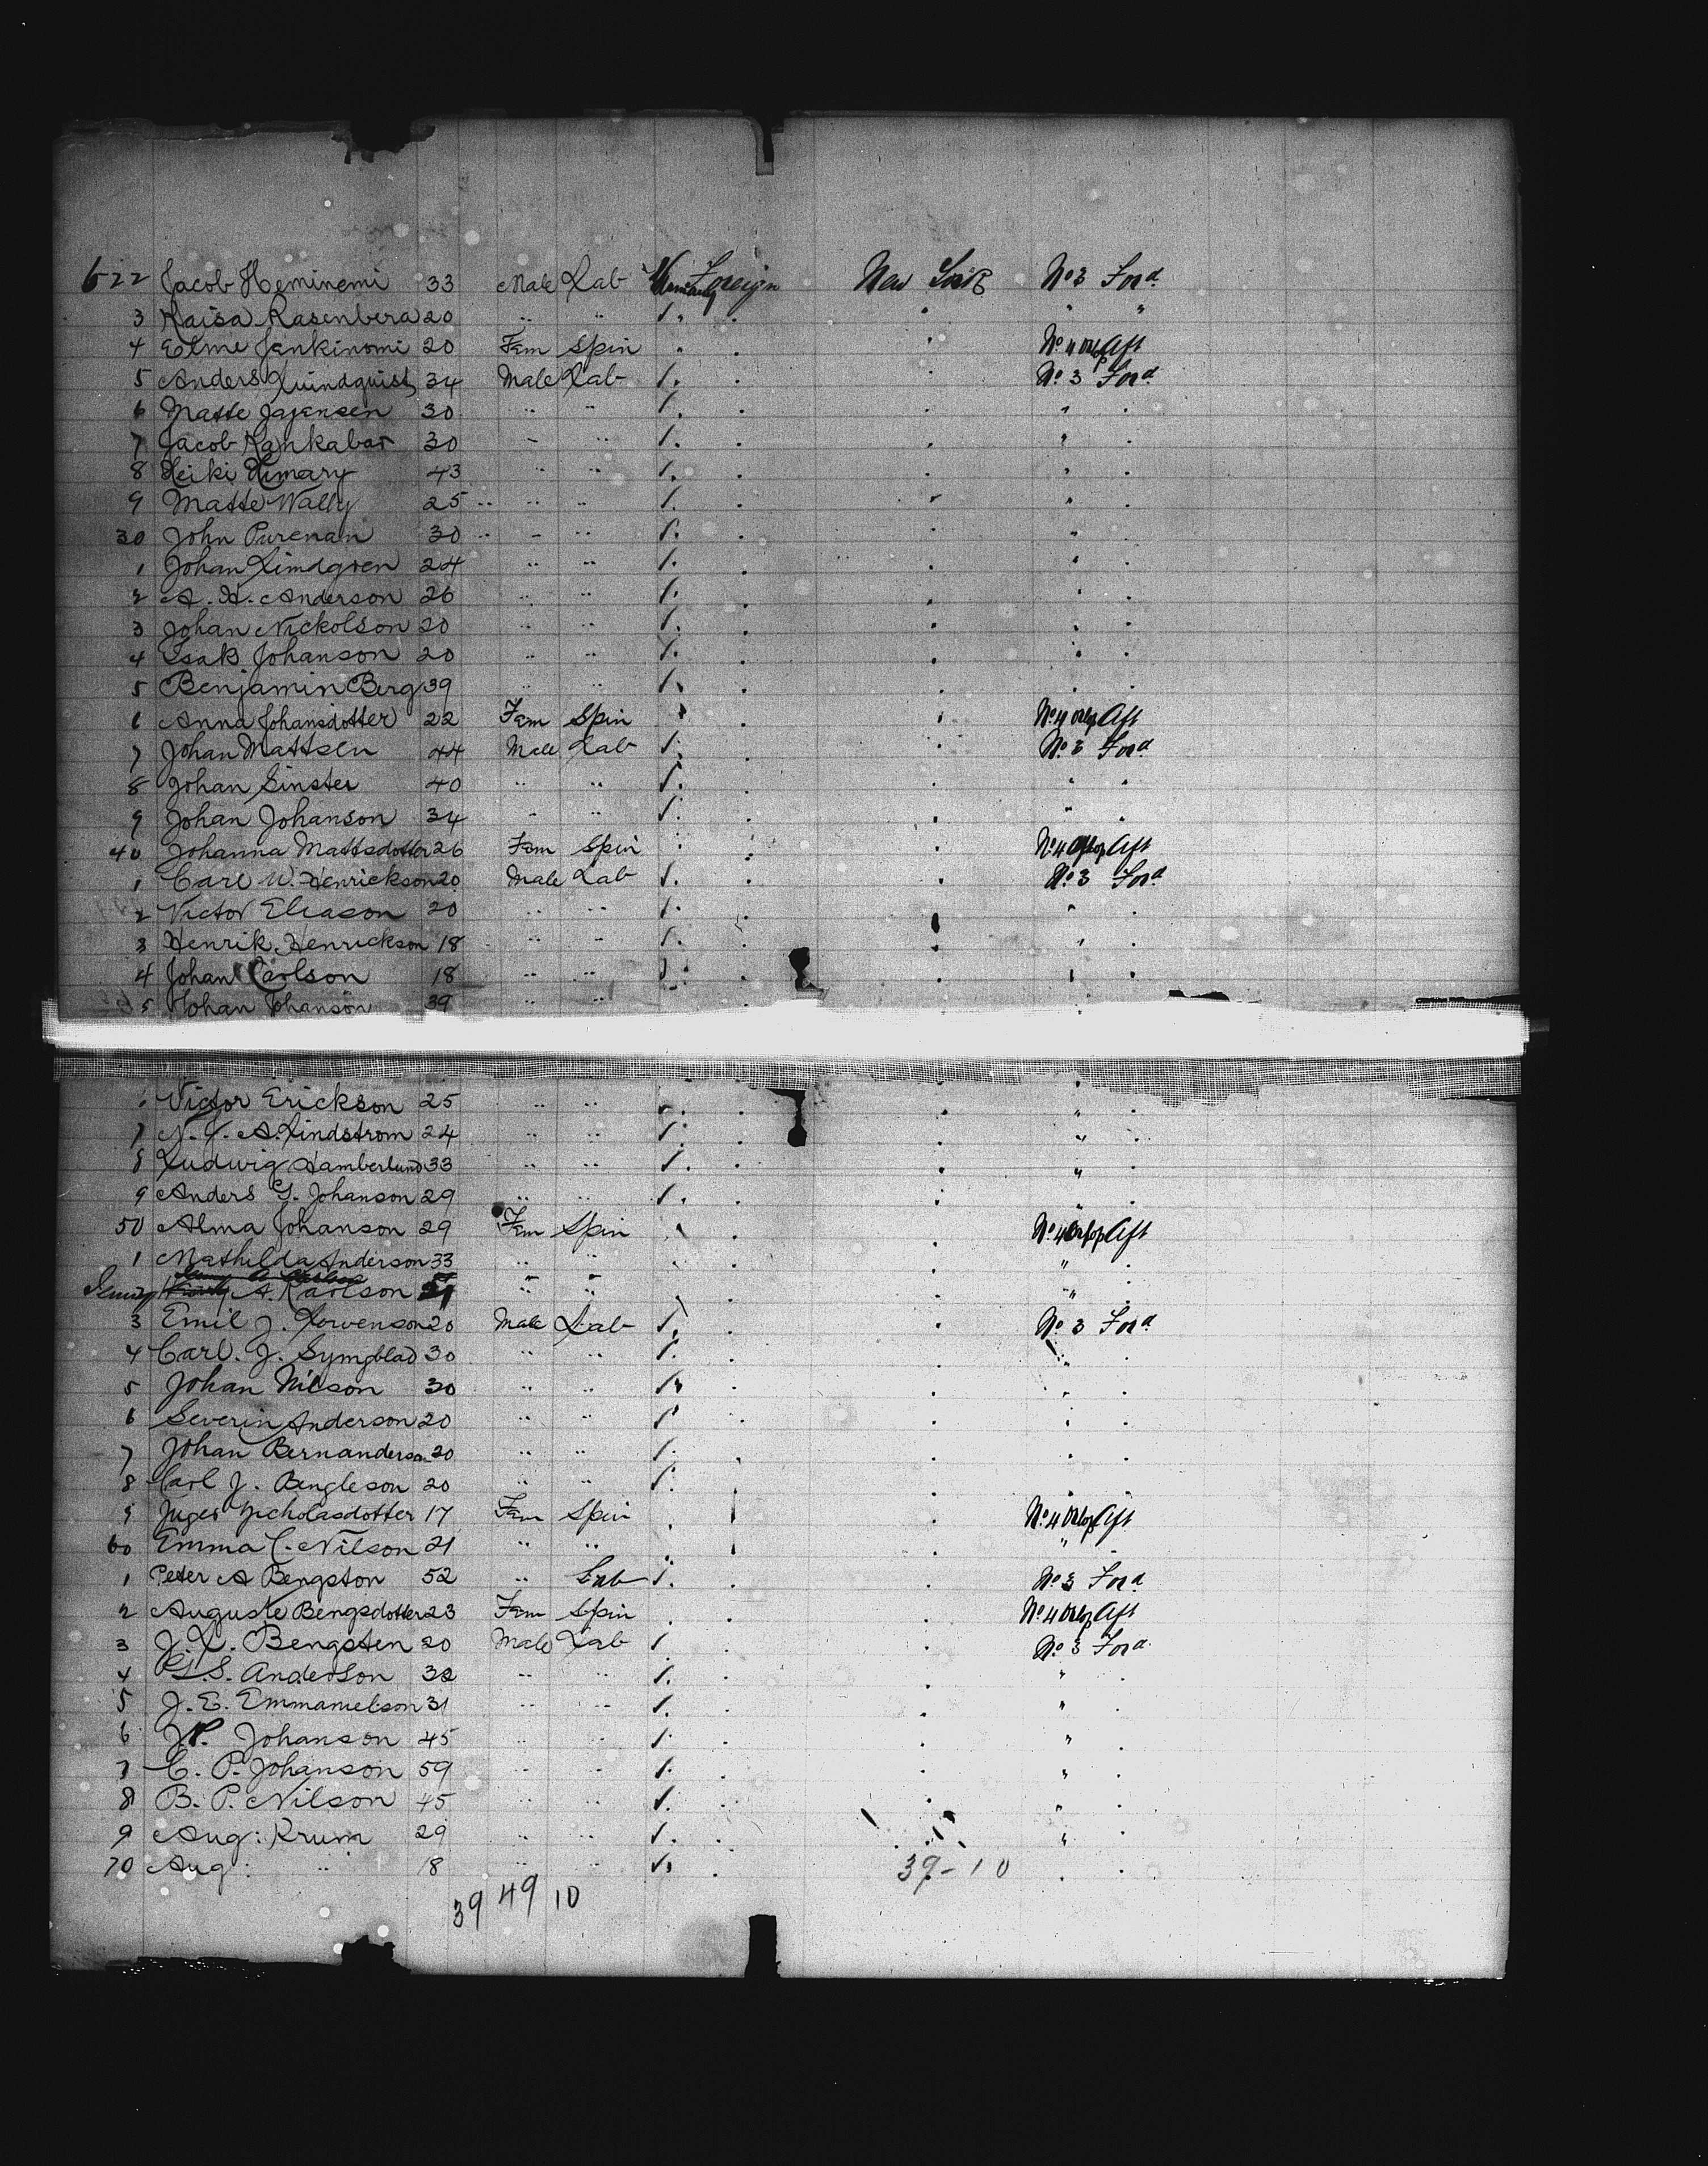 622 Jacob Heminemi 33 Male Lab Foreign New York No 3 Ford
3 Kaisa Rasenberg 20 " " " " "
4 Elme Jenkinomi 20 Fem Spin No 4 Orlop Aft
5 Anders Quindquist 34 Male Lab No 3 Ford
6 Matte Jajansen 30 " "
7 Jacob Kankabar 30 " "
8 Heiki Himary 43 " "
9 Matte Wally 25 " "
30 John Purenan 30 " "
1 Johan Limdgren 24 " "
2 A. H. Anderson 26 " "
3 Johan Nickolson 20 " "
4 Isak Johanson 20 " "
5 Benjamin Berg 39 " "
6 Anna Johansdotter 22 Fem Spin No 4 Orlop Aft
7 Johan Mattsen 44 Male Lab No 3 Ford
8 Johan Sinster 40 " "
9 Johan Johanson 34 " "
40 Johanna Mattsdotter 26 Fem Spin No 4 Orlop Aft
1 Carl W. Henrickson 20 Male Lab No 3 Ford
2 Victor Eliason 20 " "
3 Henrik Henrickson 18 " "
4 Johan Carlson 18 " "
5 Johan Johanson 39 " "
Victor Erickson 25 " "
7 N. J. A. Lindstrom 24 " "
8 Ludwig Hamberlund 33 " "
9 Anders G. Johanson 29 " "
50 Alma Johanson 29 Fem Spin No 4 Orlop Aft
1 Mathilda Anderson 33 " "
A. Karlson " "
3 Emil J. Lorvenson 20 Male Lab No 3 Ford
4 Carl. J. Symgblad 30 " "
5 Johan Nilson 30 " "
6 Severin Anderson 20 " "
7 Johan Bernanderson 20 " "
8 Carl J. Bengleson 20 " "
9 Inger Nicholasdotter 17 Fem Spin No 4 Orlop Aft
60 Emma C. Nilson 21 " "
1 Peter A Bengston 52 " Lab No 3 Ford
2 Auguste Bengsdotter 23 Fem Spin No 4 Orlop Aft
3 J. L. Bengsten 20 Male Lab No 3 Ford
4 G. S. Anderson 32 " "
5 J. E. Emmanuelson 31 " "
6 J. P. Johanson 45 " "
7 C. P. Johanson 59 " "
8 B. P. Nilson 45 " "
9 Aug: Krum 29 " "
70 Aug: " 18 " "
39-10
39 49 10